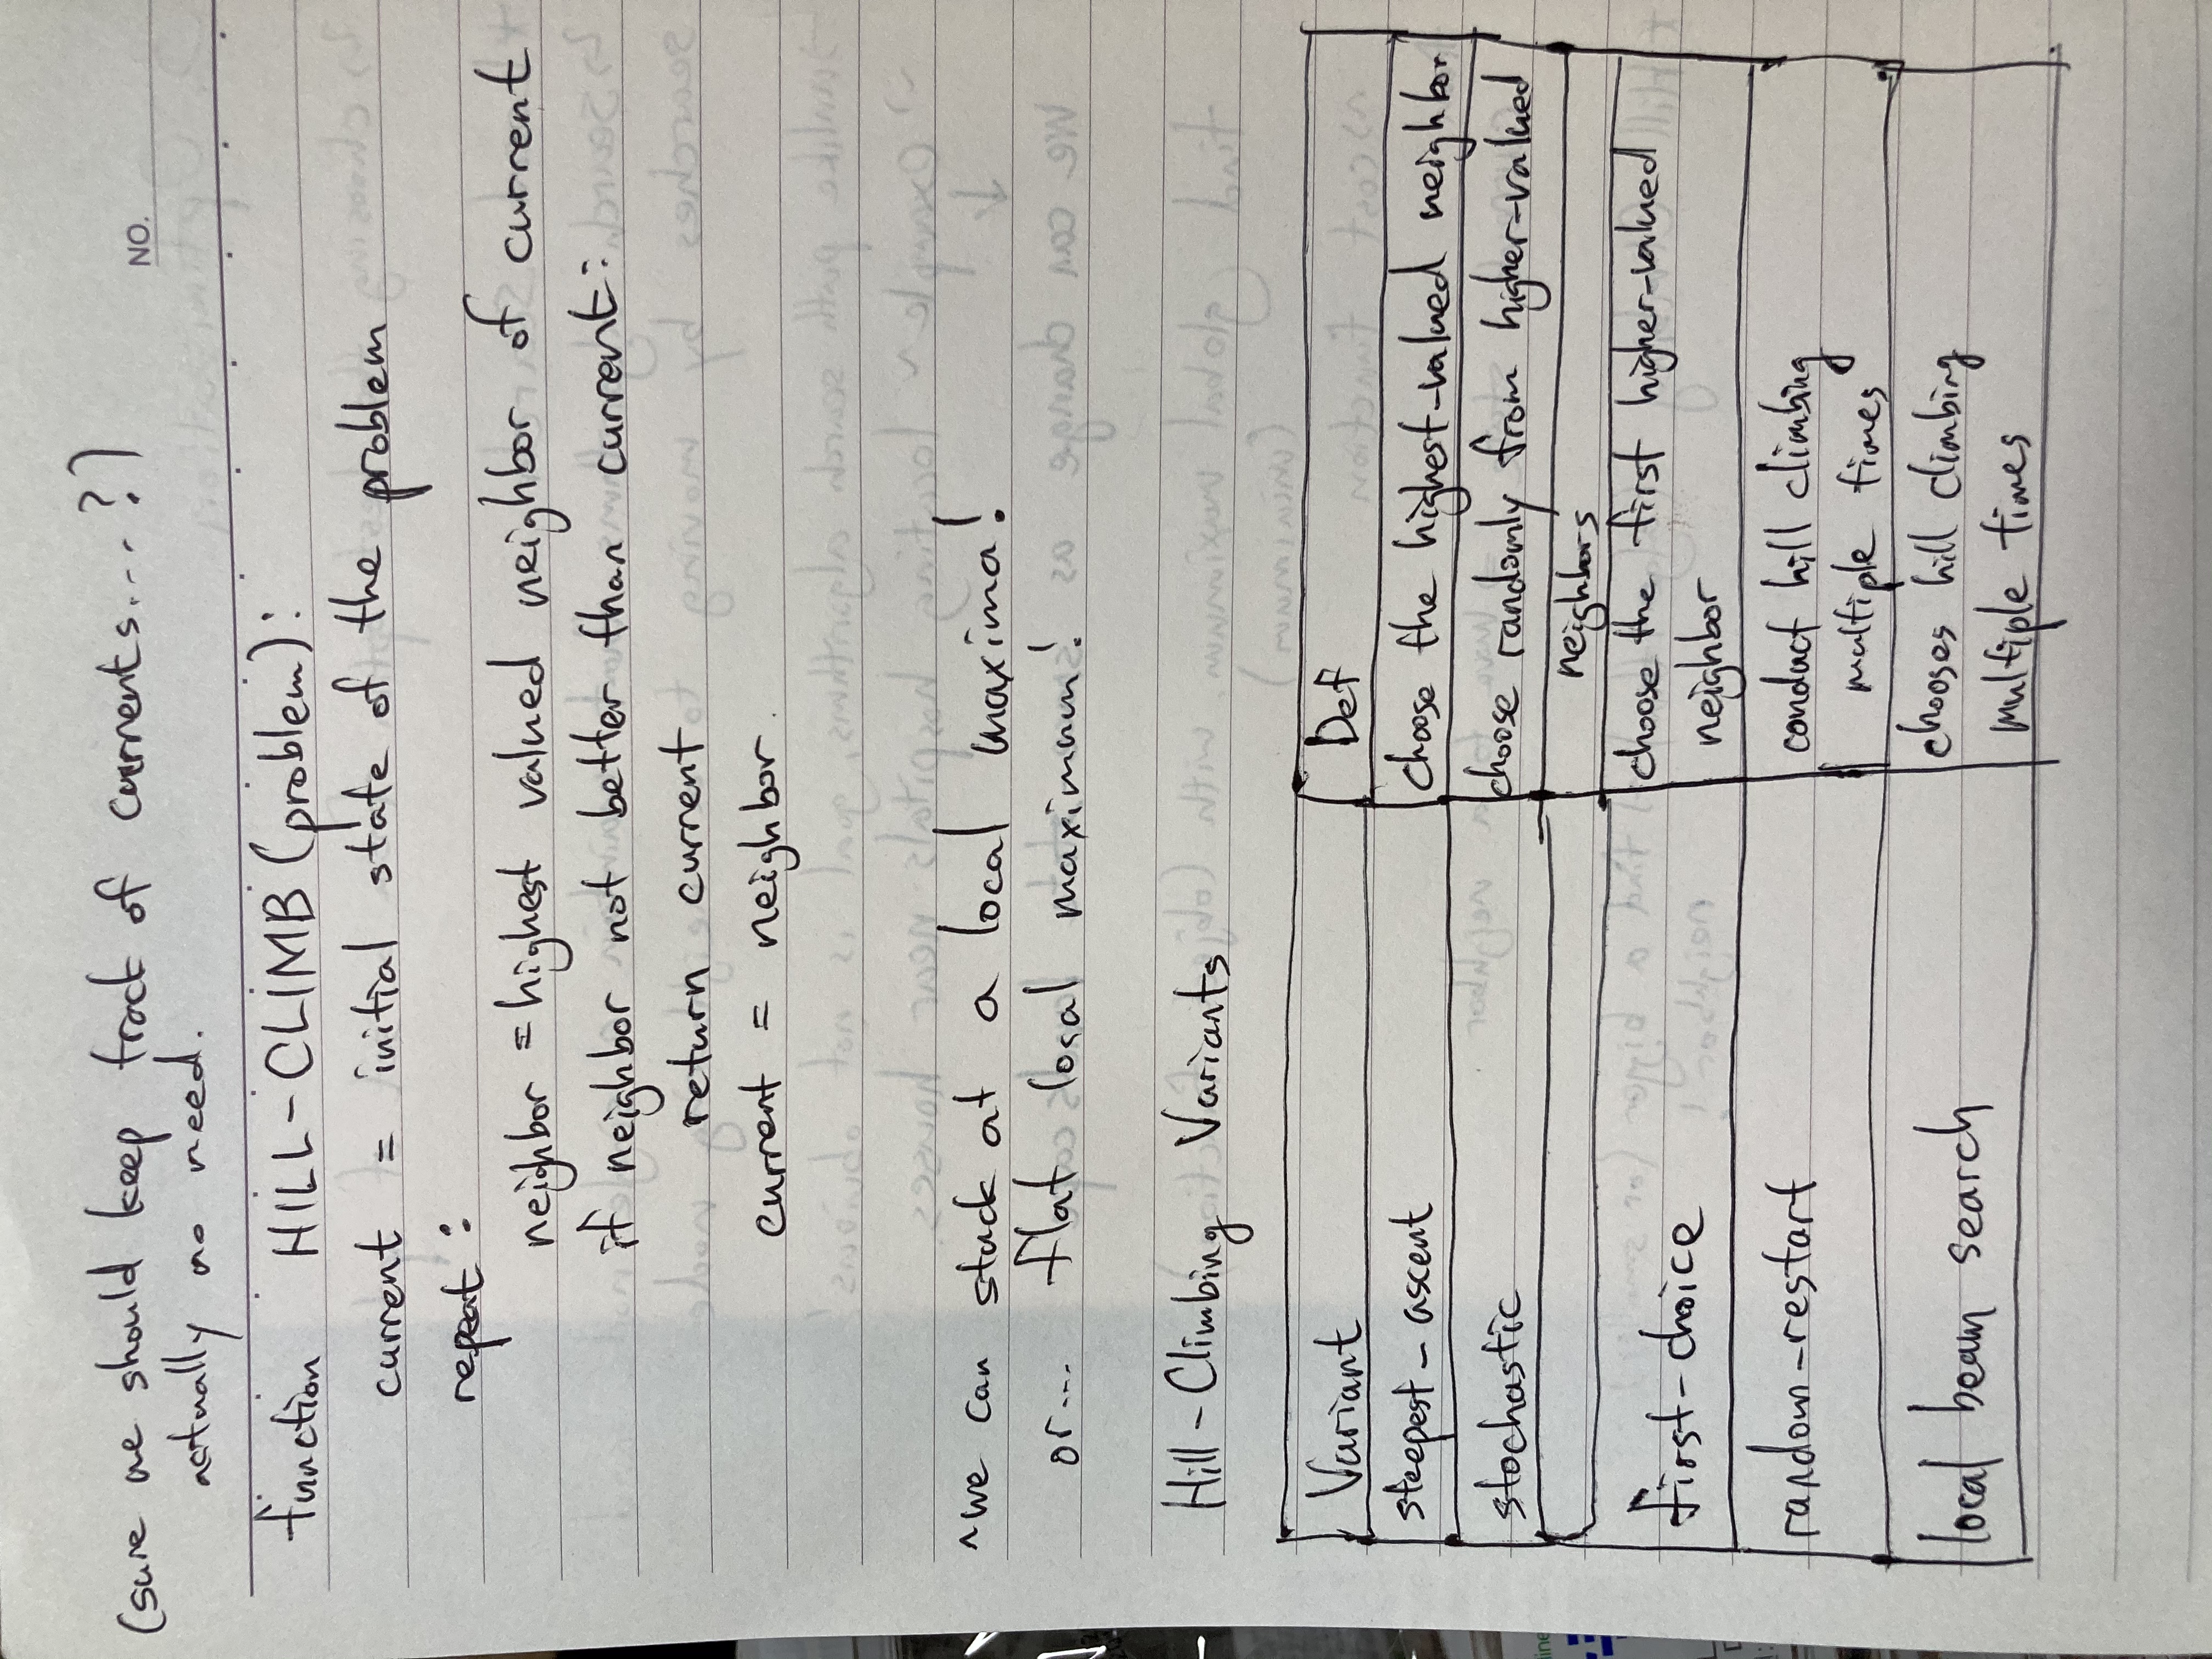 (sure we should keep track of currents....?)
NO.
actually no need.
function HILL-CLIMB (problem):
current = initial state of the problem
repeat:
neighbor = highest valued neighbor of current
if neighbor not better than current:
return current
current = neighbor.
~we can stuck at a local maxima!
or... flat local maximum!
Hill-Climbing Variants
Variant Def
steepest-ascent choose the highest-valued neighbor
stochastic choose randomly from higher-valued
neighbors
choose the first higher-valued
first-choice
neighbor
random-restart conduct hill climbing
multiple times
chooses hill climbing
local beam search
multiple times